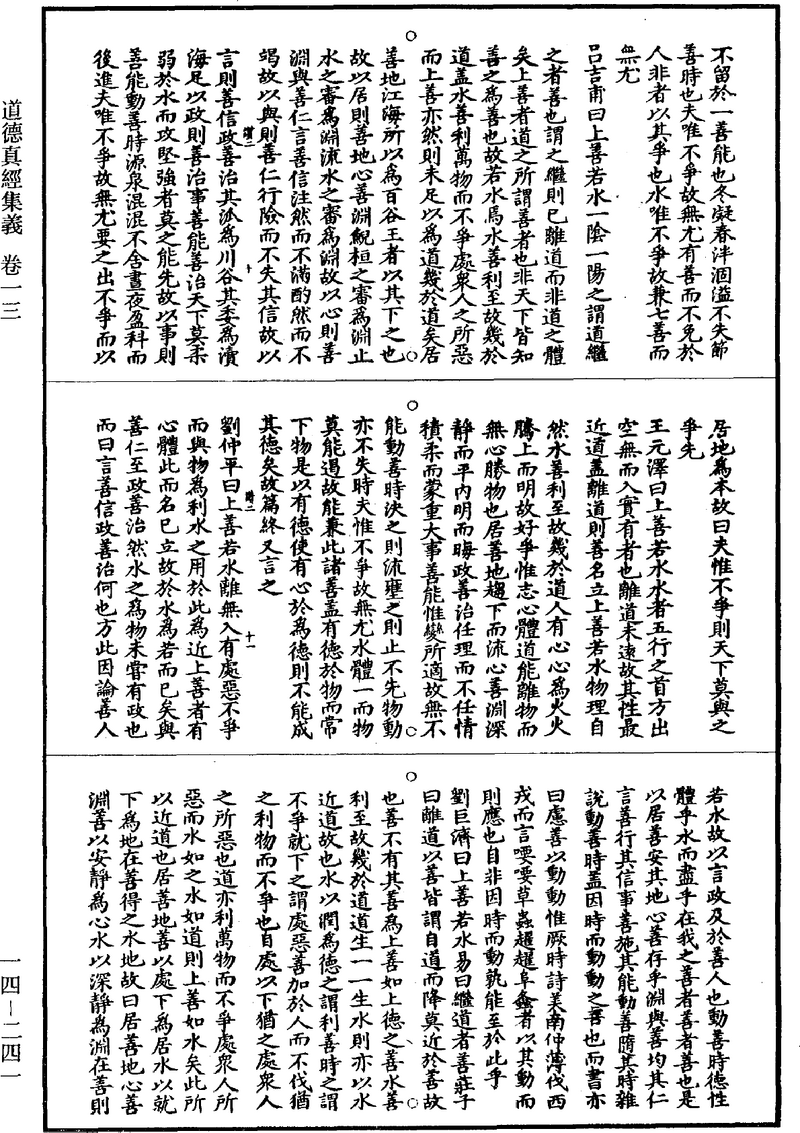 道德真經集義 卷一三
一四—二四一
不留於一善能也冬凝春泮涸溢不失節
善時也夫唯不爭故無尤有善而不免於
人非者以其爭也水唯不爭故兼七善而
無尤
呂吉甫曰上善若水一陰一陽之謂道繼
之者善也謂之繼則已離道而非道之體
矣上善者道之所謂善者也非天下皆知
善之為善也故若水焉水善利至故幾於
道蓋水善利萬物而不爭處衆人之所惡
而上善亦然則未足以為道幾於道矣居
善地江海所以為百谷王者以其下之也
故以居則善地心善淵鯢桓之審為淵止
水之審為淵流水之審為淵故以心則善
淵與善仁言善信注然而不滿酌然而不
竭故以與則善仁行險而不失其信故以
言則善信政善治其派為川谷其委為瀆
海足以政則善治事善能善治天下莫柔
弱於水而攻堅強者莫之能先故以事則
善能動善時源泉混混不舍晝夜盈科而
後進夫唯不爭故無尤要之出不爭而以
十
居地為本故曰夫惟不爭則天下莫與之
爭先
王元澤曰上善若水水者五行之首方出
空無而入實有者也離道未遠故其性最
近道蓋離道則善名立上善若水物理自
然水善利至故幾於道人有心心為火火
騰上而明故好爭惟志心體道能離物而
無心勝物也居善地趨下而流心善淵深
靜而平內明而晦政善治任理而不任情
積柔而蒙重大事善能惟變所適故無不
能動善時決之則流壅之則止不先物動
亦不失時夫惟不爭故無尤水體一而物
莫能遏故能兼此諸善蓋有德於物而常
下物是以有德使有心於為德則不能成
其德矣故篇終又言之
十一
劉仲平曰上善若水離無入有處惡不爭
而與物為利水之用於此為近上善者有
心體此而名已立故於水為若而已矣與
善仁至政善治然水之為物未嘗有政也
而曰言善信政善治何也方此因論善人
若水故以言政及於善人也動善時德性
體乎水而盡乎在我之善者善者善也是
以居善安其地心善存乎淵與善均其仁
言善行其信事善施其能動善隨其時雜
說動善時蓋因時而動動之善也而書亦
曰慮善以動動惟厥時詩美南仲薄伐西
戎而言喓喓草蟲趯趯阜螽者以其動而
則應也自非因時而動孰能至於此乎
劉巨濟曰上善若水易曰繼道者善莊子
曰離道以善皆謂自道而降莫近於善故
也善不有其善為上善如上德之善水善
利至故幾於道道生一一生水則亦以水
近道故也水以潤為德之謂利善時之謂
不爭就下之謂處惡善加於人而不伐猶
之利物而不爭也自處以下猶之處衆人
之所惡也道亦利萬物而不爭處衆人所
惡而水如之水如道則上善如水矣此所
以近道也居善地善以處下為居水以就
下為地在善得之水地故曰居善地心善
淵善以安靜為心水以深靜為淵在善則